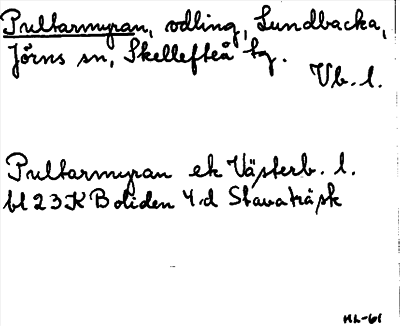 Pultarmyran, odling, Lundbacka,
Jörns sn, Skellefteå tg.
Vb. l.
Pultarmyran ek Västerb. l.
bl 23 K Boliden 4 d Stavaträsk
HL-61